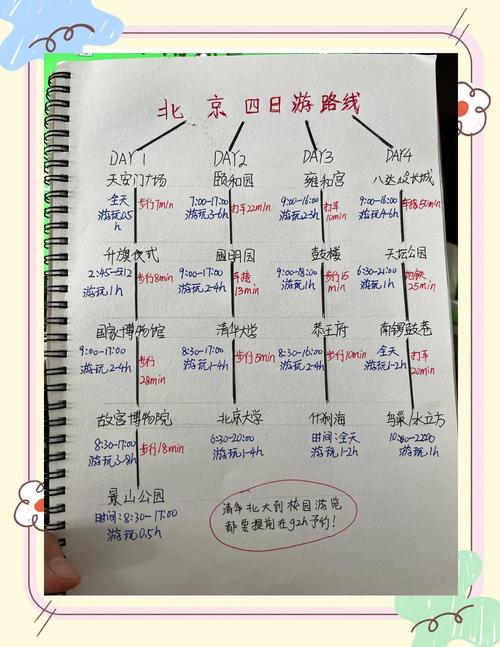 北京四日游路线
DAY1
天安门广场
全天
游玩0.5h
步行7min
升旗仪式
2:45-5:12
游玩1h
步行8min
国家博物馆
9:00-17:00
游玩2-4h
步行
28min
故宫博物院
8:30-17:00
游玩3-8h
步行18min
景山公园
时间:8:30-17:00
游玩0.5h
DAY2
颐和园
7:00-17:00
游玩3-6h
打车22min
圆明园
9:00-17:00
游玩2-4h
13min
清华大学
8:30-17:00
游玩1-4h
步行5min
北京大学
6:30-20:00
游玩1-4h
DAY3
雍和宫
9:00-16:00
游玩2-3h
打车
10min
鼓楼
9:00-18:00
游玩1h
步行15
min
恭王府
8:30-16:00
游玩2-4h
步行10min
什刹海
时间:全天
游玩1-2h
DAY4
八达岭长城
9:00-16:00
游玩4-6h
50min
天坛公园
6:30-21:00
游玩2-4h
地铁
25min
南锣鼓巷
全天
游玩1-2h
打车
20min
鸟巢/水立方
游玩1h
清华北大到校园游览
都要提前在92h予约!